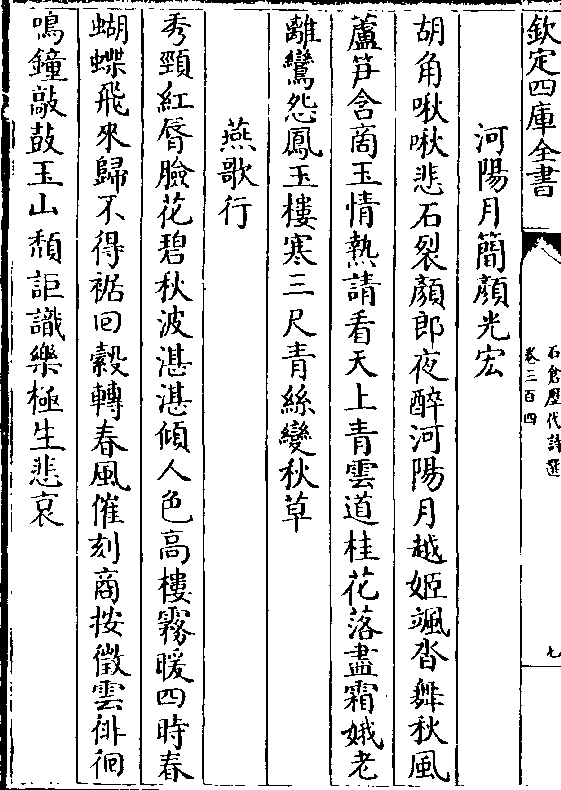 欽定四庫全書
石倉歷代詩選
卷三百四
九
河陽月簡顔光宏
胡角啾啾悲石裂顔郎夜醉河陽月越姬颯沓舞秋風
蘆笋含商玉情熱請看天上青雲道桂花落盡霜娥老
離鸞怨鳳玉樓寒三尺青絲變秋草
燕歌行
秀頸紅脣臉花碧秋波湛湛傾人色高樓霧暖四時春
蝴蝶飛來歸不得裾回縠轉春風催刻商按徵雲徘徊
鳴鐘敲鼓玉山頽詎識樂極生悲哀